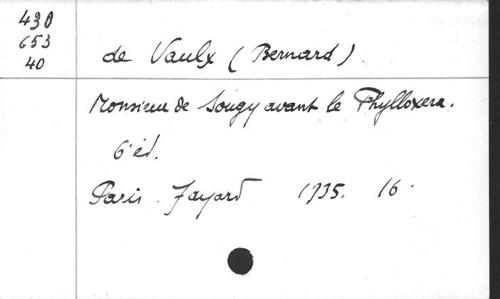 430
653
40
de Vaulx (Bernard)
Monsieur de Sougy avant le Phylloxera.
6' éd.
Paris. Fayard 1935. 16°